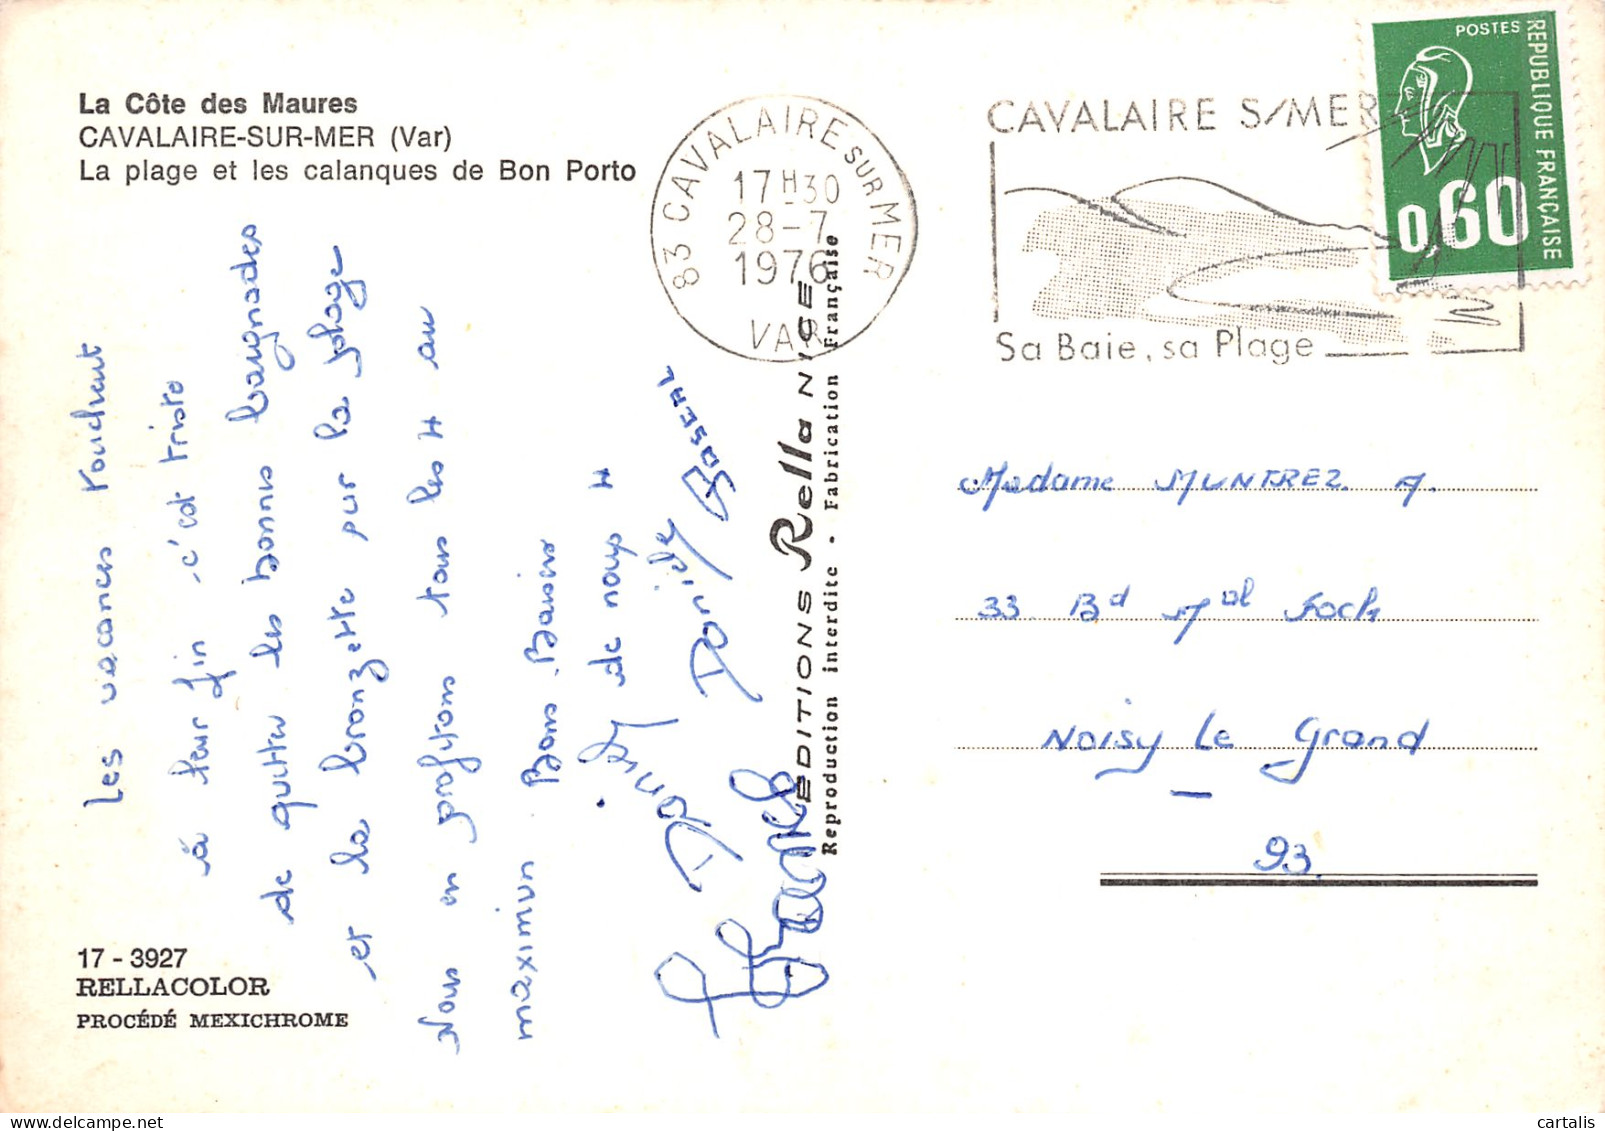 La Côte des Maures
CAVALAIRE-SUR-MER (Var)
La plage et les calanques de Bon Porto
83 CAVALAIRE SUR MER
17H30
28-7
1976
VAR
CAVALAIRE S/MER
Sa Baie, sa Plage
POSTES
REPUBLIQUE FRANÇAISE
0,60
Les vacances touchent
à leur fin c'est triste
de quitter les bonnes baignades
et la bronzette sur la plage
Nous en profitons tous les 4 au
maximum Bons Baisers
de nous 4
Daniele
ROSERL
EDITIONS Rella NICE
Reproduction interdite • Fabrication Française
Madame MUNTREZ A.
33 Bd Mal Foch
Noisy Le Grand
93.
17 - 3927
RELLACOLOR
PROCÉDÉ MEXICHROME
cartalis